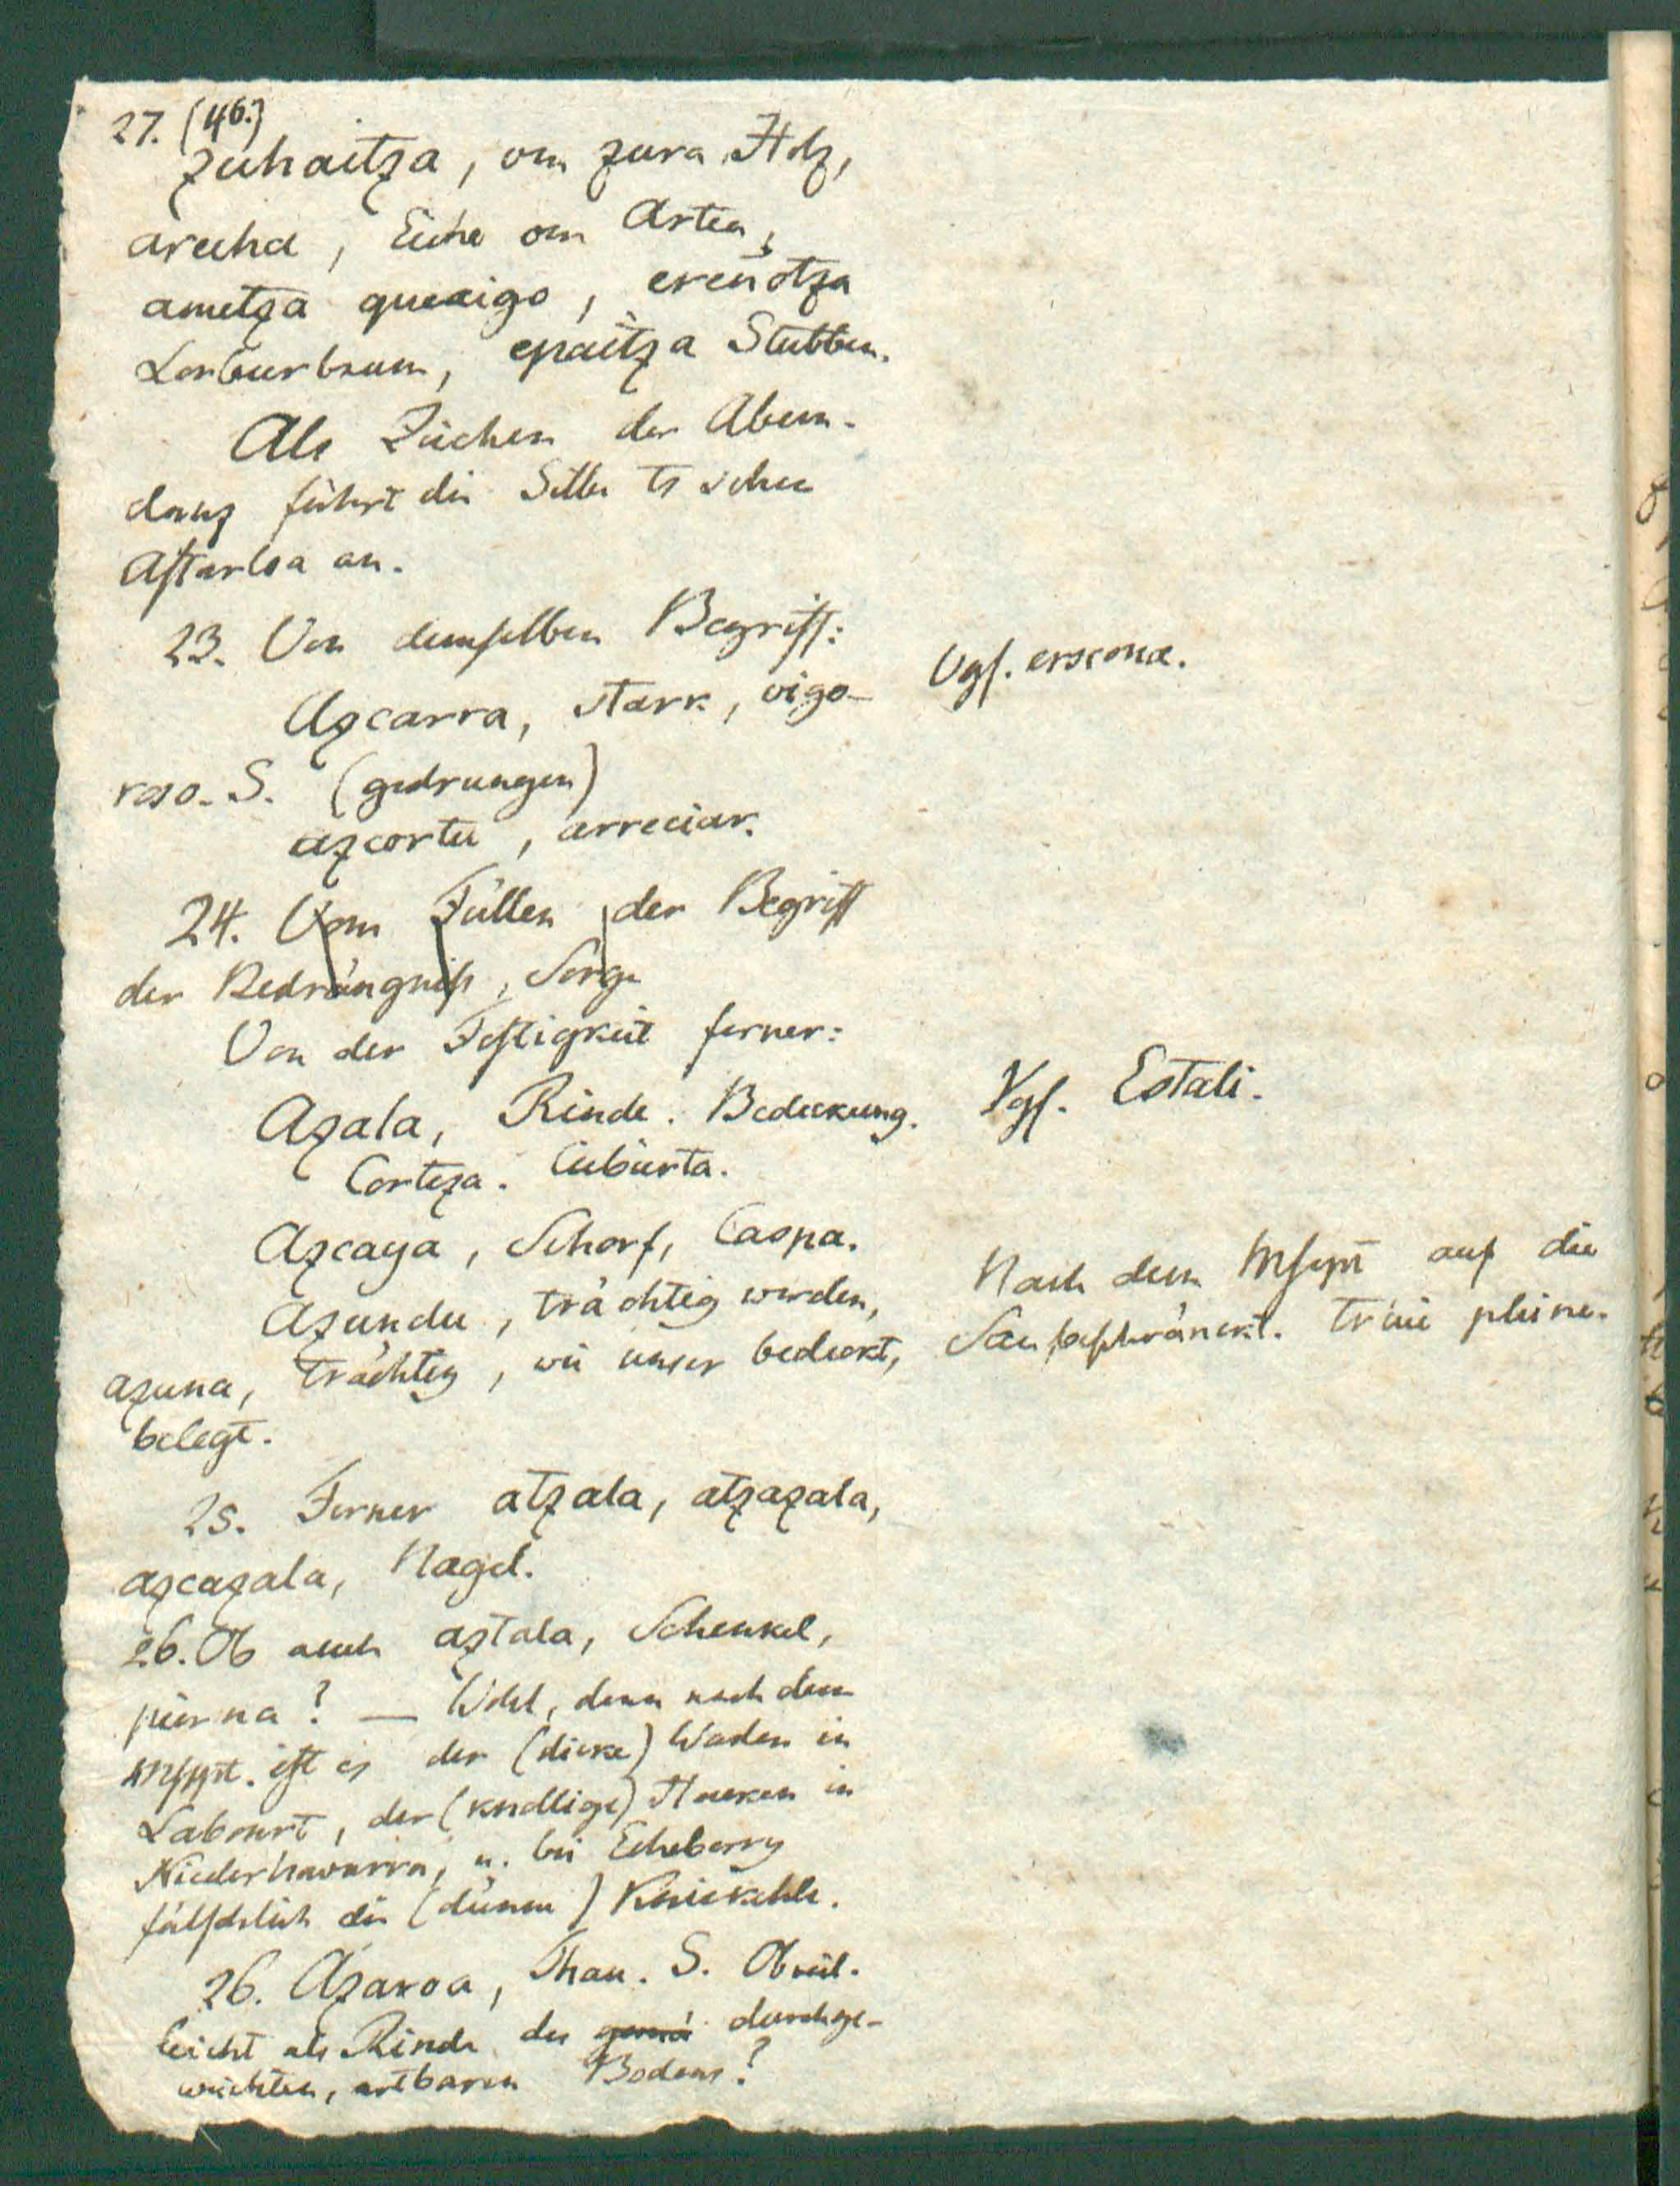 27. (46.)
zuhaitza, von zura Holz,
arecha, Eiche von Artea,
ametza quexigo, ereñotza
Lorbeerbaum, epaitza Stubben.
Als Zeichen der Abun-
danz führt die Silbe ts schon
Astarloa an.
23. Von demselben Begriff:
Vgl. ezcona.
Azcarra, stark, vigo-
roso. S. (gedrungen)
azcortu, arreciar.
24. Vom Füllen der Begriff
der Bedrängniß, Sorge
Von der Festigkeit ferner:
Azala, Rinde. Bedeckung.
Vgl. Estali.
Corteza. Cubierta.
Azcaya, Schorf, Caspa.
Azundu, trächtig werden,
Nach dem Mscpt auf die
azuna, trächtig, wie unser bedeckt,
Sau beschränkt. truie pleine.
belegt.
25. Ferner atzala, atzazala,
azcazala, Nagel.
26. Ob auch aztala, Schenkel,
pierna? — Wohl, denn nach dem
Mscpt. ist es der (dicke) Waden in
Labourt, der (knollige) Hacken in
Niedernavarra, u. bei Etcheberry
fälschlich die (dünne) Kniekehle.
26. Azaroa, Thau. S. Ob viel-
leicht als Rinde des durchge-
weichten, artbaren Bodens?